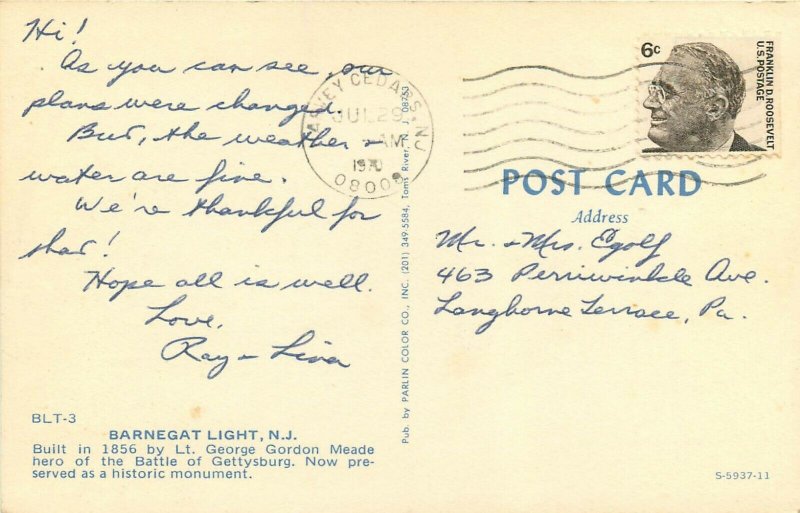 Hi!
As you can see, our
plans were changed.
But, the weather +
water are fine.
We're thankful for
that!
Hope all is well.
Love,
Ray + Lina
BLT-3
BARNEGAT LIGHT, N.J.
Built in 1856 by Lt. George Gordon Meade
hero of the Battle of Gettysburg. Now pre-
served as a historic monument.
HARVEY CEDARS, NJ
JUL 29
AM
1970
08008
Pub. by PARLIN COLOR CO., INC. (201) 349-5584, Toms River, N.J. 08753
6c
FRANKLIN D. ROOSEVELT
U.S. POSTAGE
POST CARD
Address
Mr. + Mrs. Egolf
463 Perriwinkle Ave.
Langhorne Terrace, Pa.
S-5937-11